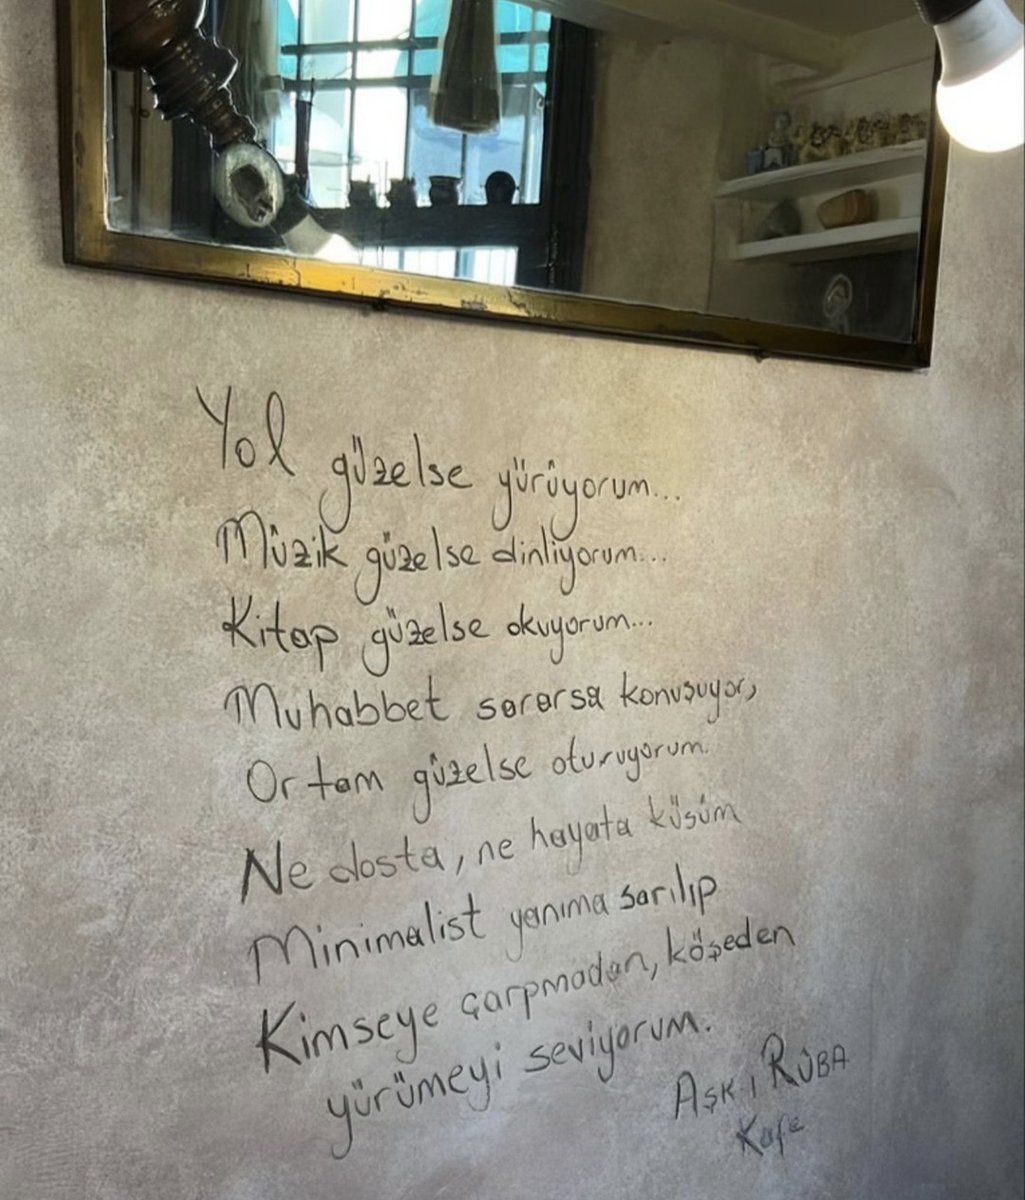 Yol güzelse yürüyorum...
Müzik güzelse dinliyorum...
Kitap güzelse okuyorum...
Muhabbet sararsa konuşuyor,
Ortam güzelse oturuyorum.
Ne dosta, ne hayata küsüm
Minimalist yanıma sarılıp
Kimseye çarpmadan, köşeden
yürümeyi seviyorum.
AŞK-I RÜBA
Kafe